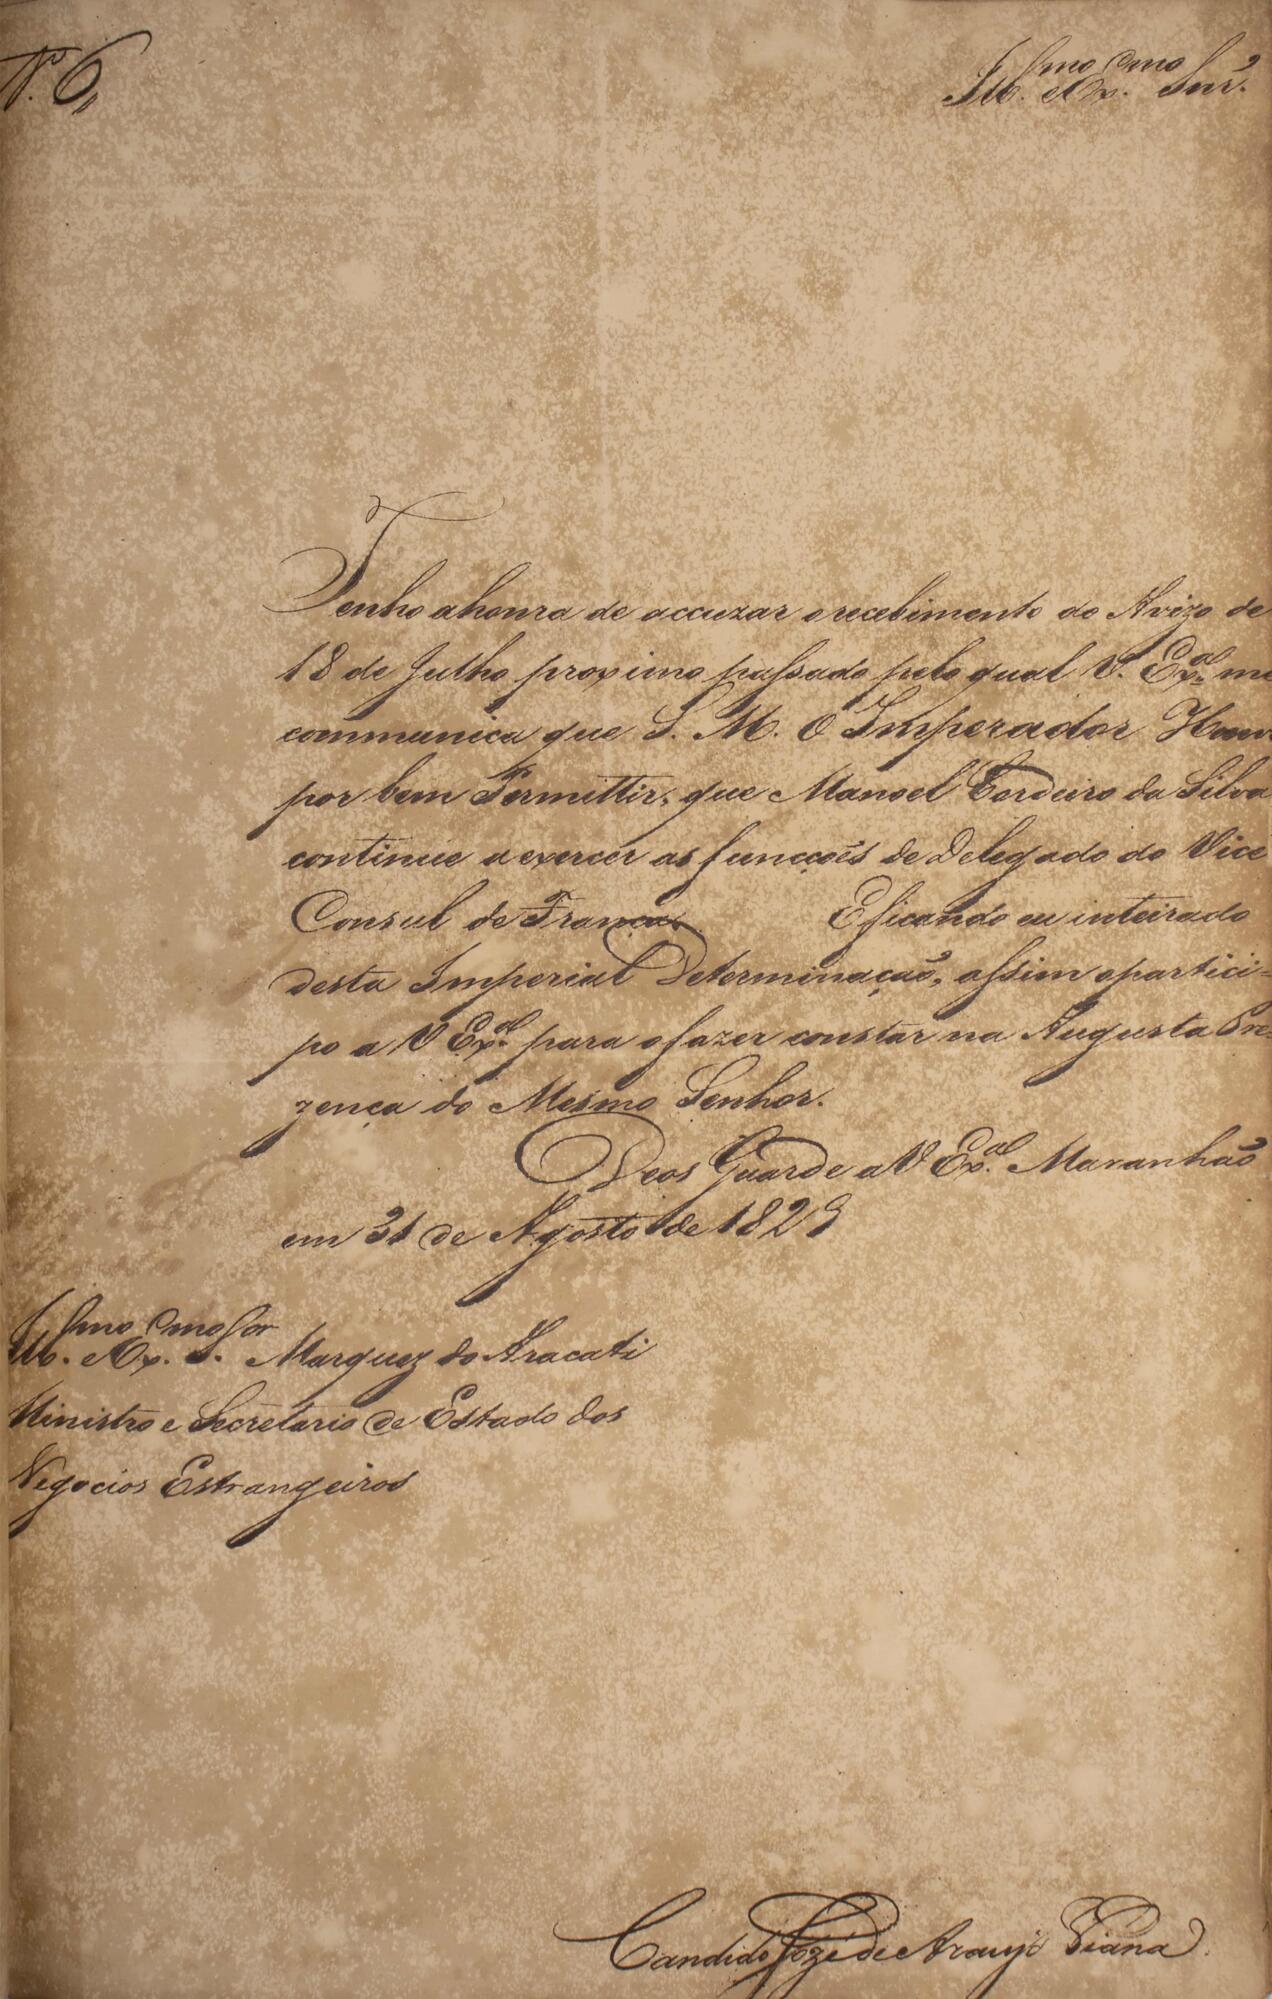 N.º 6
Ill.mo e Ex.mo Snr.
Tenho a honra de accuzar o recebimento do Avizo de
18 de Julho proximo passado pelo qual V. Ex.ª me
communica que S. M. O Imperador Houve
por bem Permittir, que Manoel Cordeiro da Silva
continue a exercer as funcções de Delegado do Vice
Consul de França. E ficando eu inteirado
desta Imperial Determinação, assim o partici-
po a V Ex.ª para o fazer constar na Augusta Pre-
zença do Mesmo Senhor.
Deos Guarde a V Ex.ª Maranhão
em 31 de Agosto de 1829
Ill.mo e Ex.mo S.or Marquez do Aracati
Ministro e Secretario de Estado dos
Negocios Estrangeiros
Candido Jozé de Araujo Viana